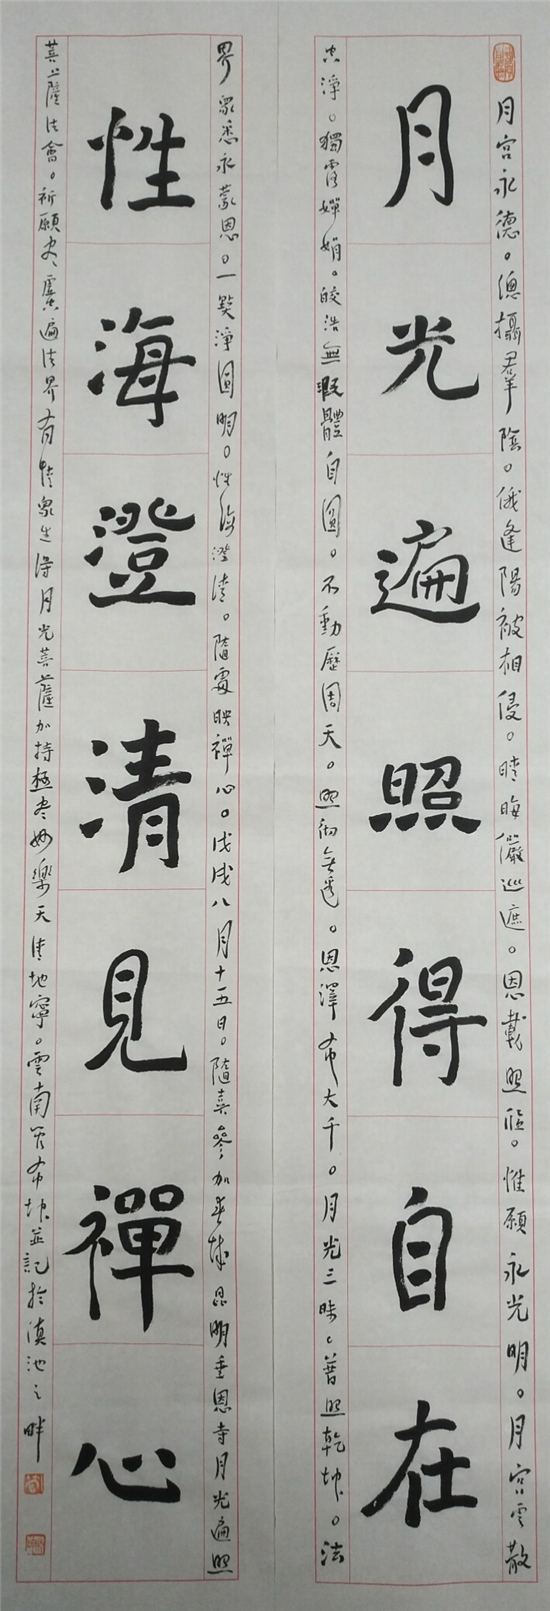 月宮永德。總攝羣陰。俄逢陽被相侵。晴晦儼巡遮。恩載照臨。惟願永光明。月宮雲散
月光遍照得自在
空淨。獨露嬋娟。皎浩無瑕體自圓。不動歷周天。照彻無邊。恩澤布大千。月光三昧、普照乾坤。法
界衆悉永蒙恩。一笑淨圓明。性海澄清。隨處映禪心。戊戌八月十五日。隨喜參加春城昆明垂恩寺月光遍照
性海澄清見禪心
菩薩法會。祈願盡虛遍法界有情衆生得月光菩薩加持極盡妙樂天清地寧。雲南布坤並記於滇池之畔